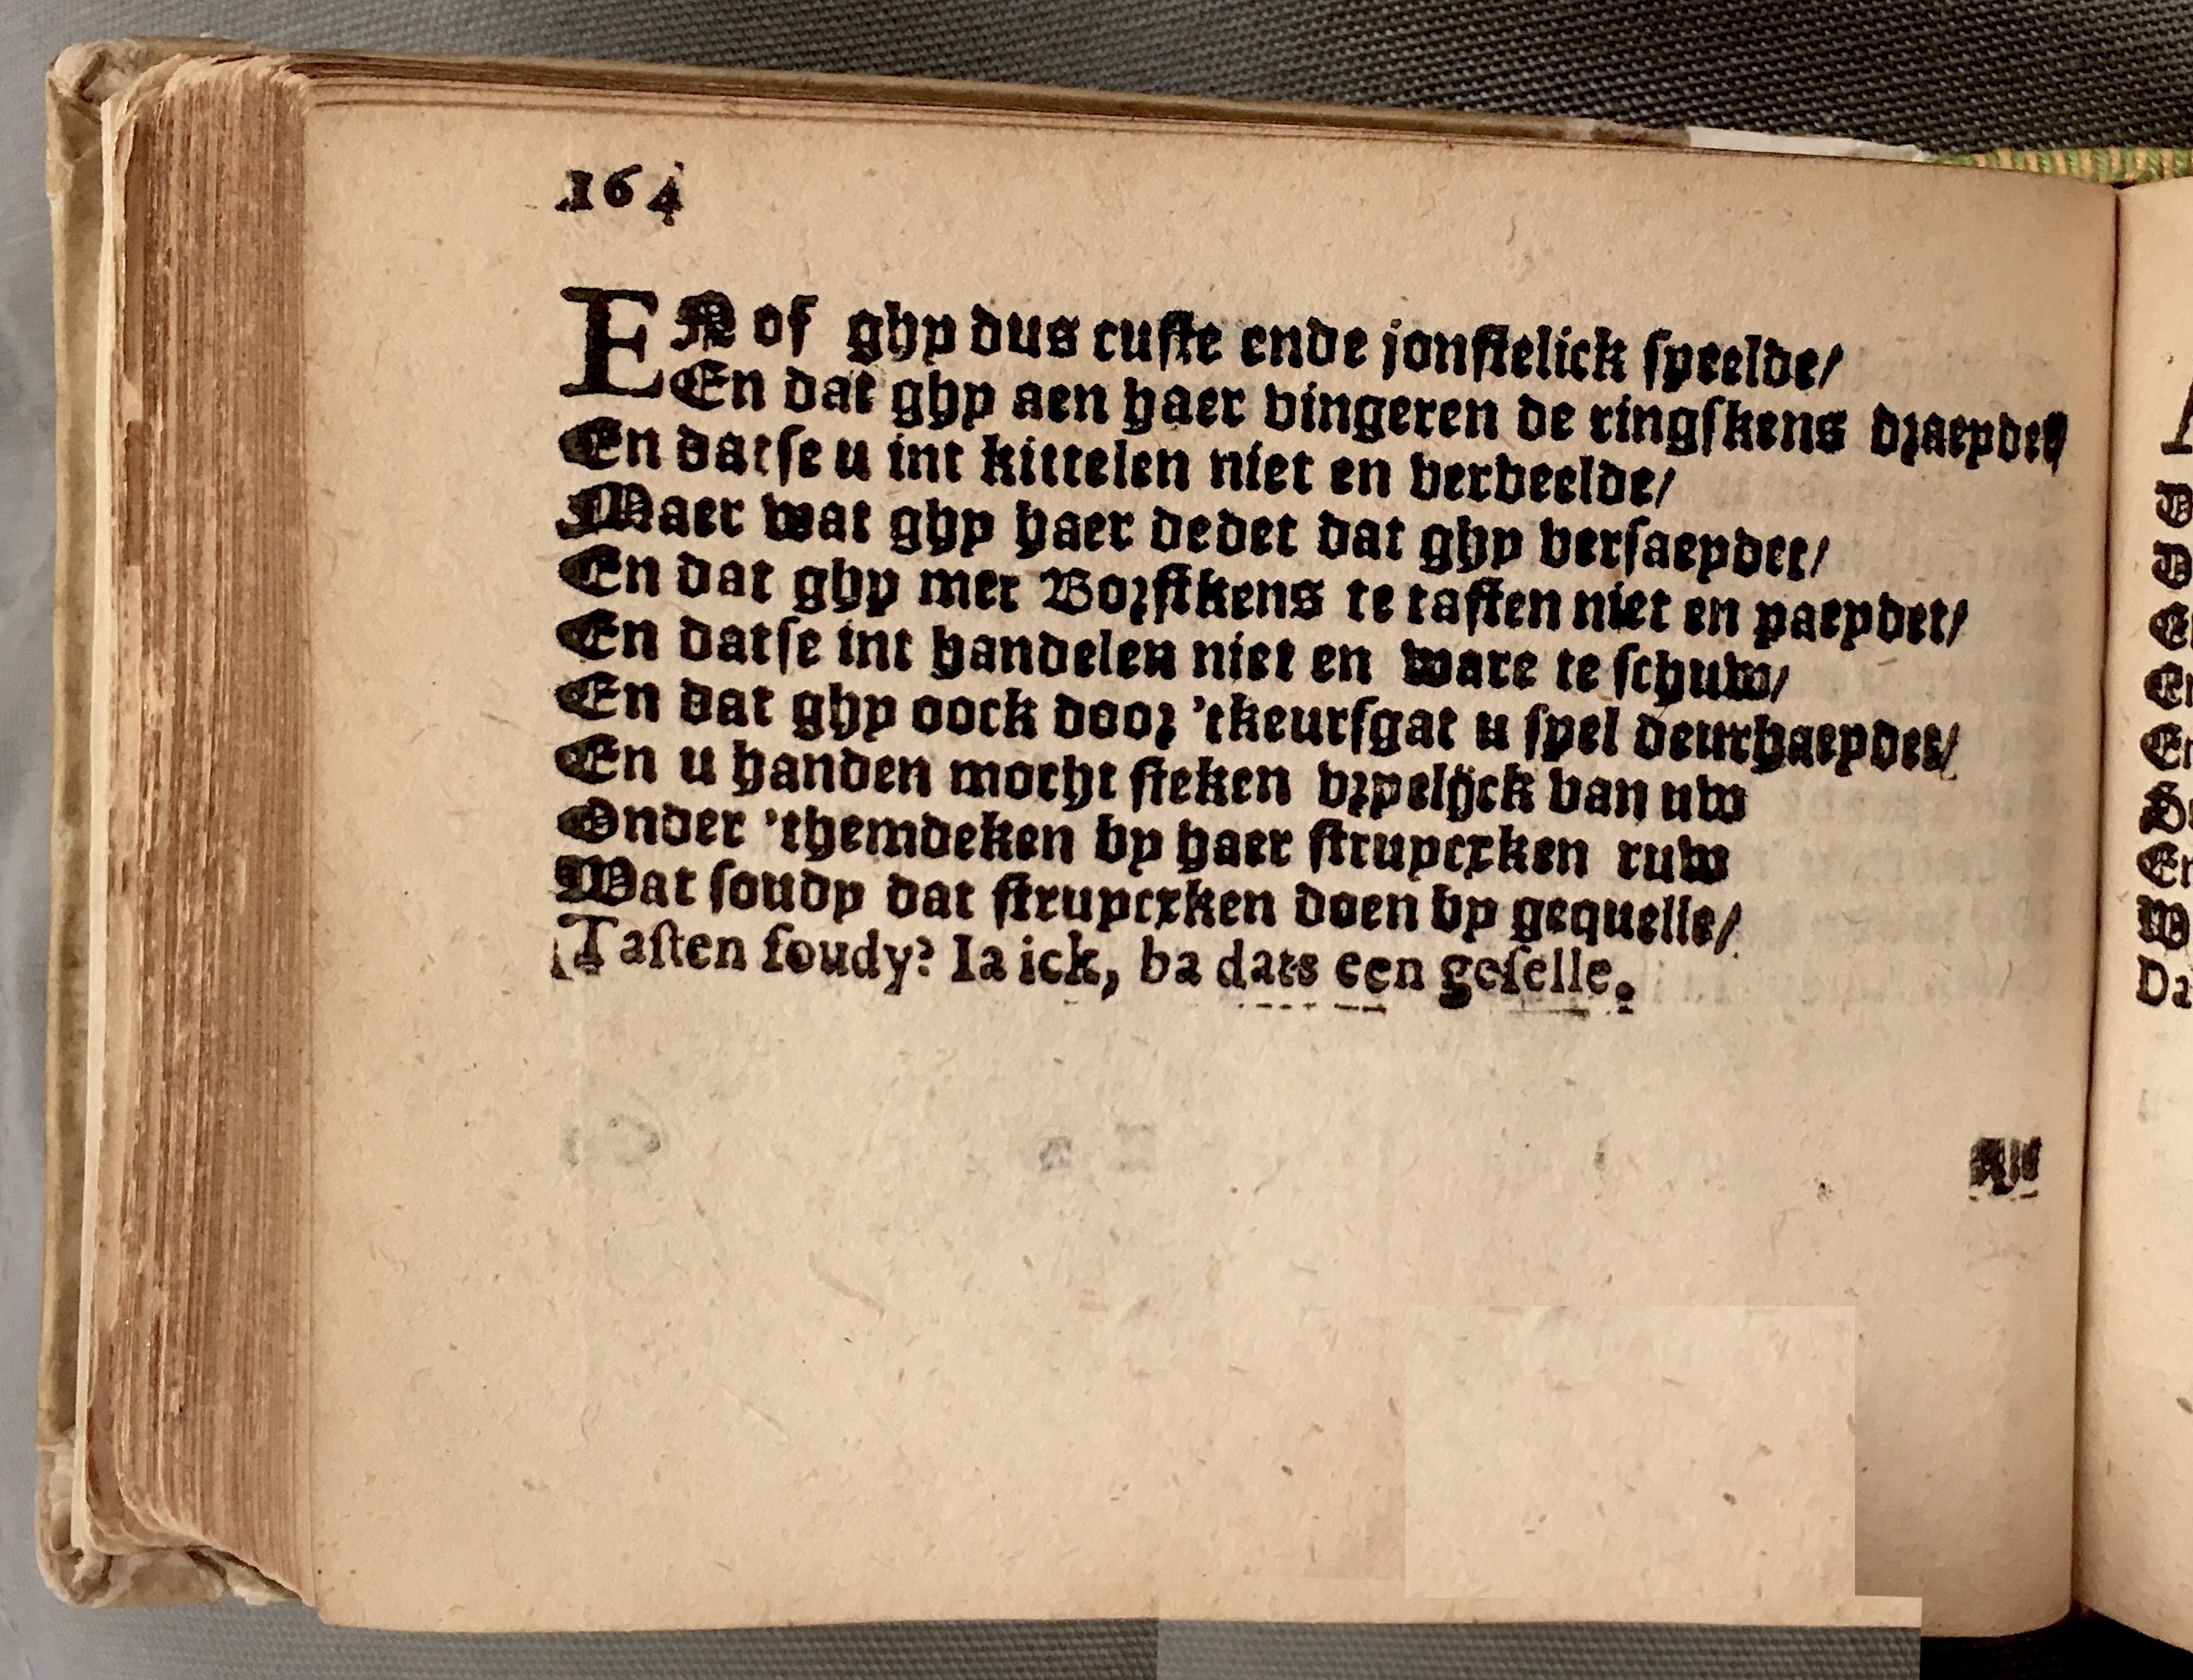 164
EN of ghy dus cuſte ende jonſtelick ſpeelde/
En dat ghy aen haer vingeren de ringſkens draeydet/
En datſe u int kittelen niet en verveelde/
Maer wat ghy haer dedet dat ghy verſaeydet/
En dat ghy met Borſtkens te taſten niet en paeydet/
En datſe int handelen niet en ware te ſchuw/
En dat ghy oock door 'tkeurſgat u ſpel deurhaeydet/
En u handen mocht ſteken vryelijck van uw
Onder 'themdeken by haer ſtruycxken ruw
Wat ſoudy dat ſtruycxken doen by gequelle/
Taſten ſoudy? Ia ick, ba dats een geſelle.